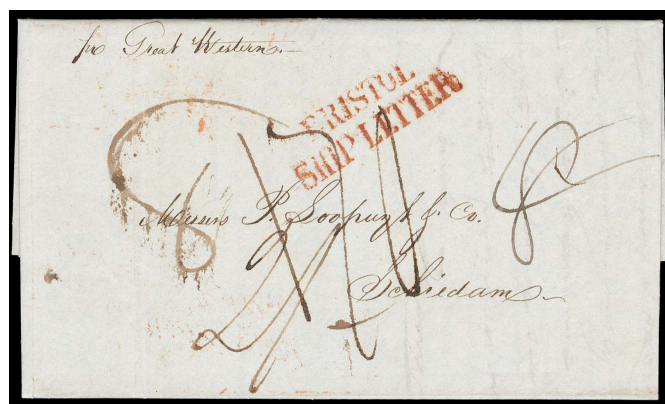 pr Great Western.
BRISTOL
SHIP LETTER
Messrs P. Loopuyt & Co.
Schiedam